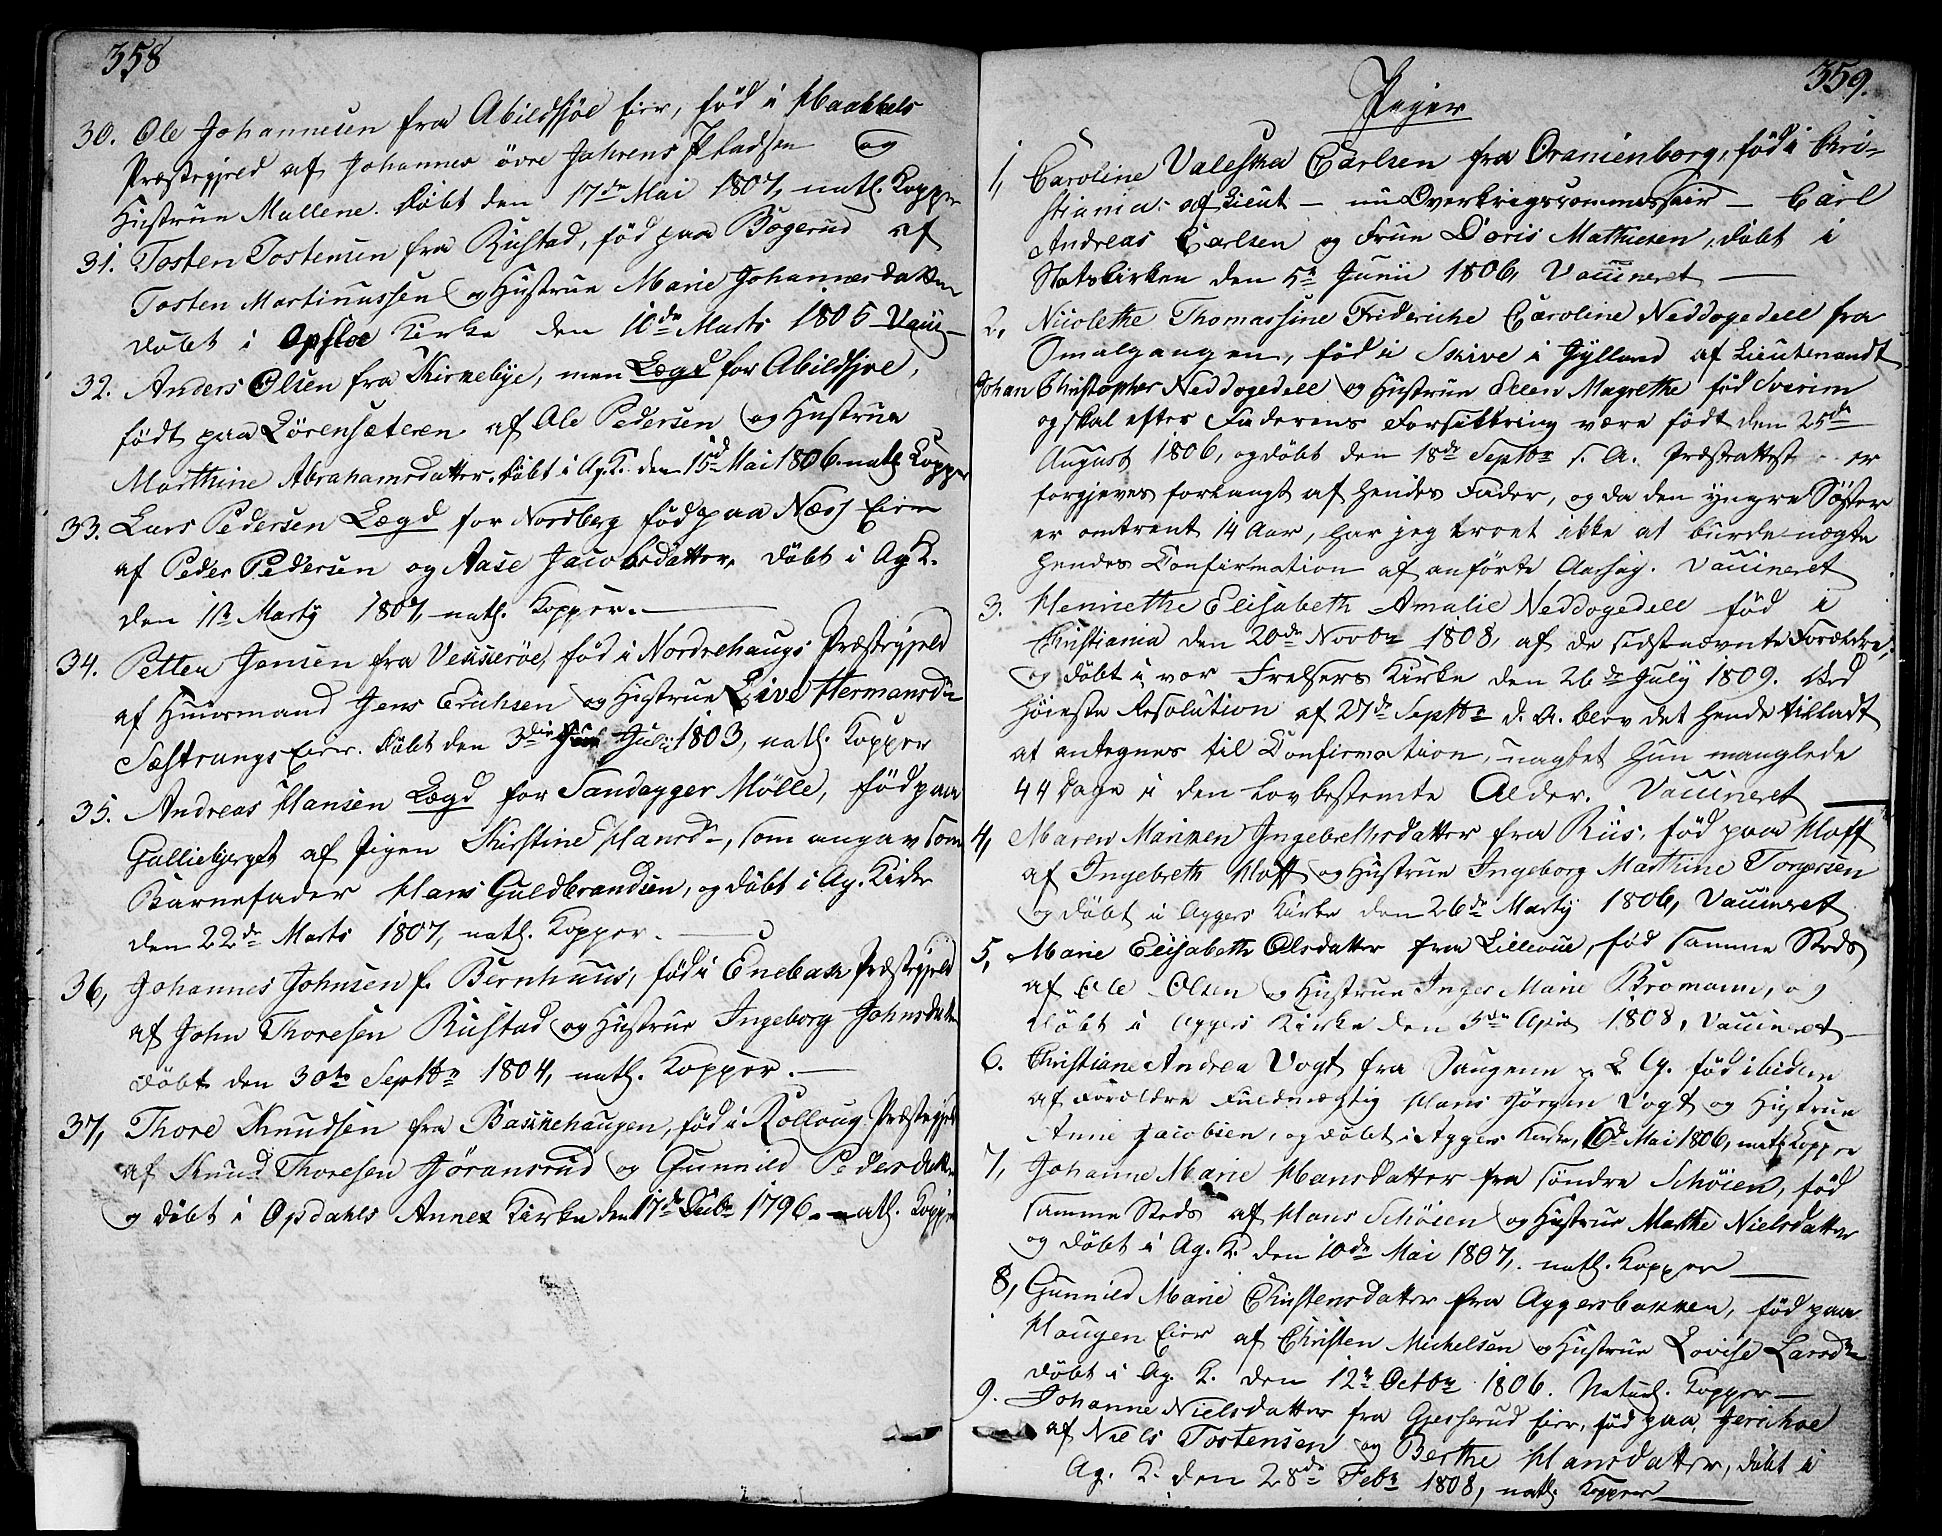 358
30. Ole Johannesen fra Abildsøe Eier, fød i Haakkels
Præstegjeld af Johannes øvre Jahrens Pladsen og
Hustrue Mallene. døbt den 17de Mai 1807, natl. Kopper
31. Tosten Tostensen fra Rustad, fød paa Bøgerud af
Tosten Martinussen og Hustrue Marie Johannesdatter
døbt i Opsloe Kirke den 10de Marts 1805 Vacc
32. Anders Olsen fra Kirkebye, men Lægd for Abildsøe,
født paa Lörensæteren af Ole Pedersen og Hustrue
Marthine Abrahamsdatter. døbt i Ag. K. den 15d Mai 1806. natl. Kopper
33. Lars Pedersen Lægd for Nordberg fød paa Næss Eier
af Peder Pedersen og Aase Jacobsdatter, døbt i Ag K.
den 1ste Martj 1807, natl. Kopper.
34. Petter Jensen fra Vekkerøe, fød i Nordrehaugs Præstegjeld
af Huusmand Jens Erichsen og Hustrue Live Hermansdr
Sæstrangs Eier. døbt den 3die Julii 1803, natl. Kopper
35. Andreas Hansen Lægd for Sandagger Mølle, fød paa
Galliebjerget af Pigen Kirstine Hansdr, som angav som
Barnefader Hans Guldbrandsen, og døbt i Ag. Kirke
den 22de Marts 1807, natl. Kopper.
36, Johannes Johnsen f. Bernhuus, fød i Enebak Præstegjeld
af John Thoresen Rustad og Hustrue Ingeborg Johnsdatter
døbt den 30te Septbr 1804, natl. Kopper.
37, Thore Knudsen fra Bakkehaugen, fød i Rolloug Præstegjeld
af Knud Thoresen Jøransrud og Gunnild Pedersdatter
og døbt i Opdahls Annex Kirke den 17de Decbr 1796. natl. Kopper
359.
Piger
1, Caroline Valeska Carlsen fra Oranienborg, fød i Chri-
stiania af Lieut - nu Overkrigscommissair - Carl
Andreas Carlsen og Frue Doris Mathiesen, døbt i
Slotskirken den 5te Junii 1806, Vaccineret
2, Nicolethe Thomassine Frideriche Caroline Neddogedell fra
Omalgangen, fød i Skive i Jylland af Lieutenandt
Johan Christopher Neddogedell og Hustrue Ellen Magrethe fød Sverim
og skal efter Faderens Forsikkring være født den 25de
August 1806, og døbt den 18de Septbr s. A. Præsteattest er
forgjeves forlangt af hendes Fader, og da den yngre Søster
er omtrent 14 Aar, har jeg troet ikke at burde negte
hendes Confirmation af anførte Aarsag. Vaccineret
3. Henriethe Elisabeth Amalie Neddogedell fød i
Christiania den 20de Novbr 1808, af de sidstnævnte Forældre,
og døbt i vor Frelsers Kirke den 26de July 1809. Ved
høieste Resolution af 27de Septbr d. A. blev det hende tilladt
at antegnes til Confirmation, uagtet hun manglede
44 Dage i den lovbestemte Alder. Vaccineret
4, Maren Marinen Ingebrethsdatter fra Riis, fød paa Hoff
af Ingebreth Hoff og Hustrue Ingeborg Marthine Torgersen
og døbt i Aggers Kirke den 26de Martj 1806, Vaccineret
5, Marie Elisabeth Olsdatter fra Lillevue, fød samme Steds
af Ole Olsen og Hustrue Inger Marie Bromann, og
døbt i Aggers Kirke den 3die April 1808, Vaccineret
6. Christiane Andrea Vogt fra Haugene p. L. G. fød ibidem
af Forældre Fuldmegtig Hans Jörgen Vogt og Hustrue
Anne Jacobsen, og døbt i Aggers Kirke, 16de Mai 1806, natl. Kopper
7, Johanne Marie Hansdatter fra søndre Schöien, fød
samme Steds af Hans Schöien og Hustrue Marthe Nielsdatter
og døbt i Ag. K. den 10de Mai 1807, natl. Kopper
8, Gunnild Marie Christensdatter fra Aggersbakken, fød paa
Haugen Eier af Christen Michelsen og Hustrue Lovise Larsdr
døbt i Ag. K. den 12te Octbr 1806. Naturl. Kopper
9. Johanne Nielsdatter fra Gjesserud Eier, fød paa Jerichoe
af Niels Tostensen og Berthe Hansdatter, døbt i
Ag. K. den 28de Febr 1808, natl. Kopper